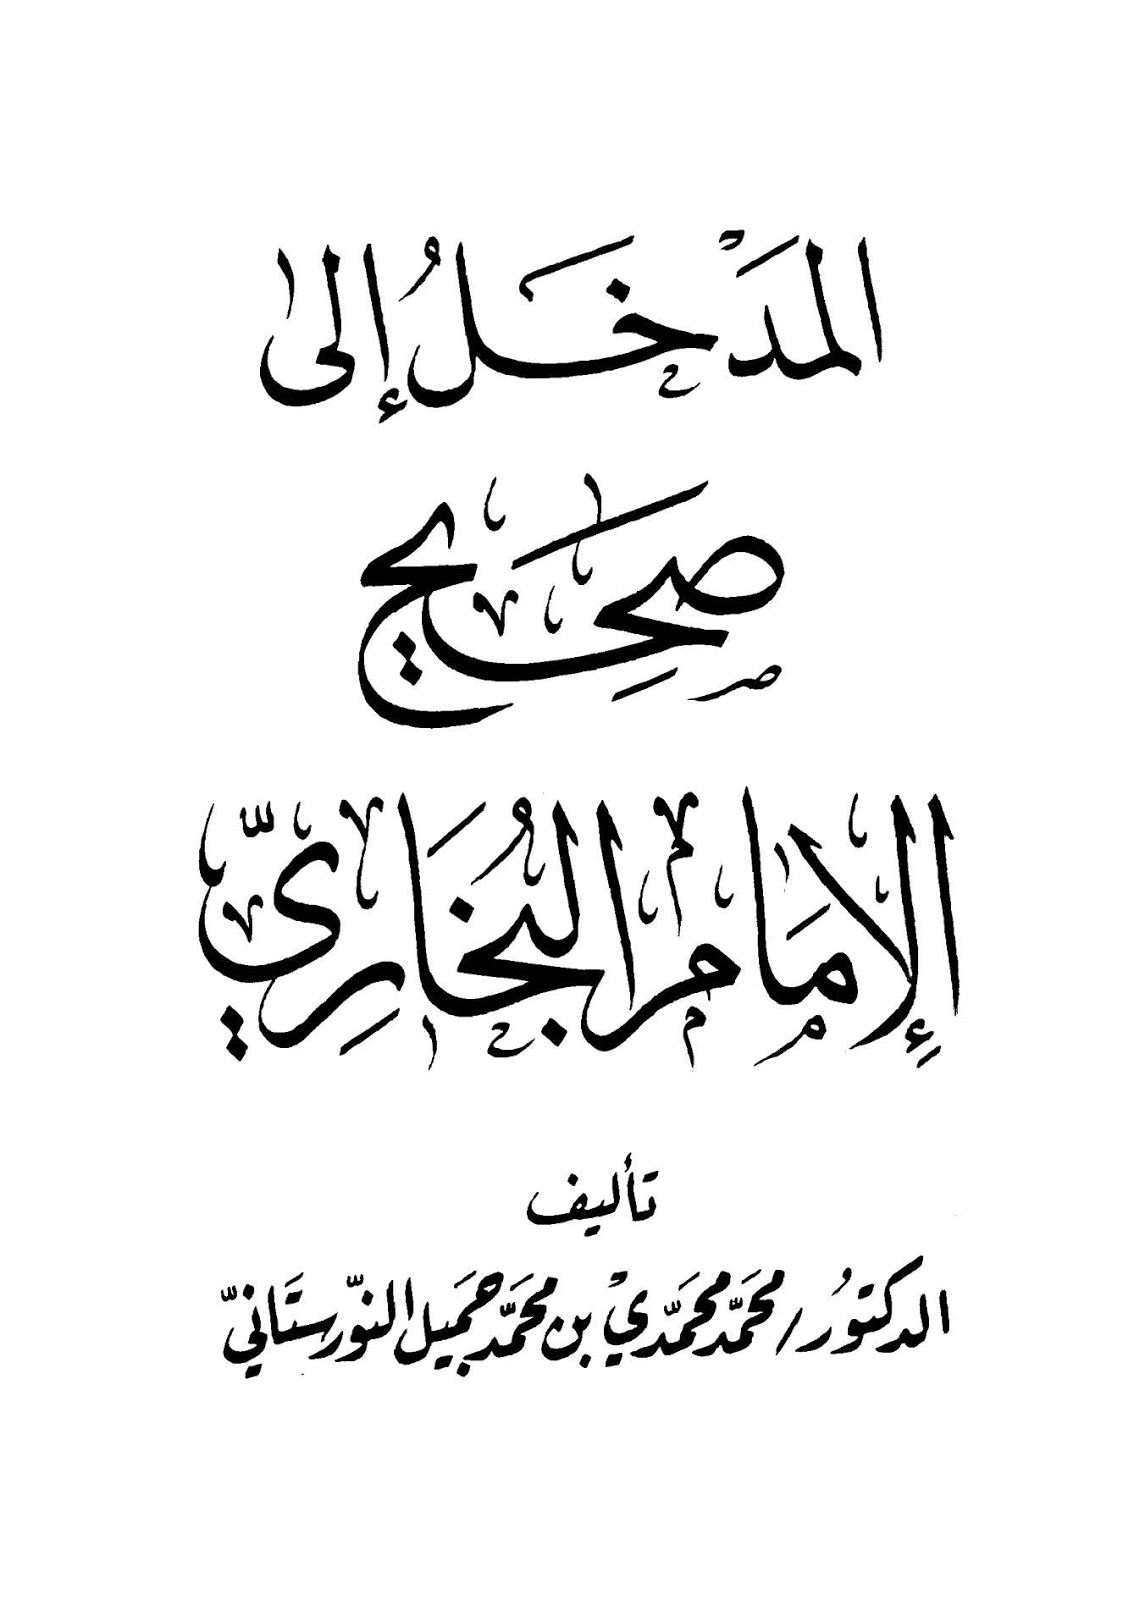 المَدْخَلُ إلى
صَحِيح
الإِمَام البُخَارِيّ
تأليف
الدكتُور/ محمَّد محمَّديْ بن محمَّد جَميل النّورستَانيّ